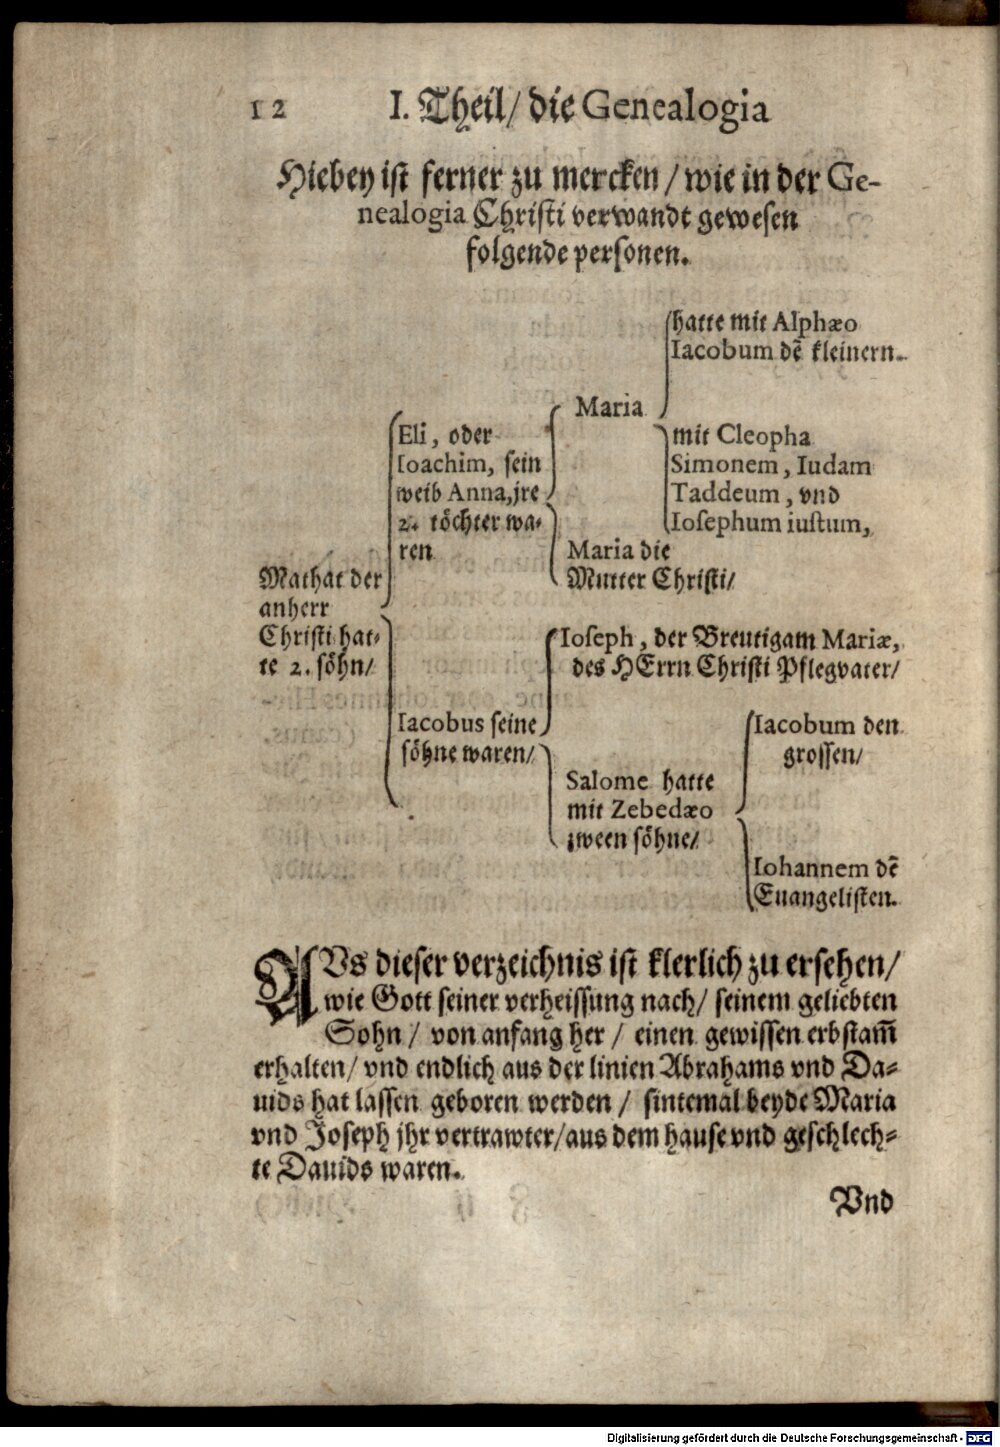 12 I. Theil/ die Genealogia
Hiebey ist ferner zu mercken / wie in der Ge-
nealogia Christi verwandt gewesen
folgende personen.
hatte mit Alphæo
Iacobum dẽ kleinern.
Maria
mit Cleopha
Simonem, Iudam
Taddeum, vnd
Iosephum iustum,
Eli, oder
Ioachim, sein
weib Anna, jre
2. töchter wa-
ren
Maria die
Mutter Christi/
Mathat der
anherr
Christi hat-
te 2. söhn/
Ioseph, der Breutigam Mariæ,
des HErrn Christi Pflegvater/
Iacobus seine
söhne waren/
Iacobum den
grossen/
Salome hatte
mit Zebedæo
zween söhne/
Iohannem dẽ
Euangelisten.
AVs dieser verzeichnis ist klerlich zu ersehen/
wie Gott seiner verheissung nach/ seinem geliebten
Sohn / von anfang her / einen gewissen erbstam̃
erhalten/ vnd endlich aus der linien Abrahams vnd Da-
uids hat lassen geboren werden / sintemal beyde Maria
vnd Joseph jhr vertrawter/aus dem hause vnd geschlech-
te Dauids waren.
Vnd
Digitalisierung gefördert durch die Deutsche Forschungsgemeinschaft - DFG